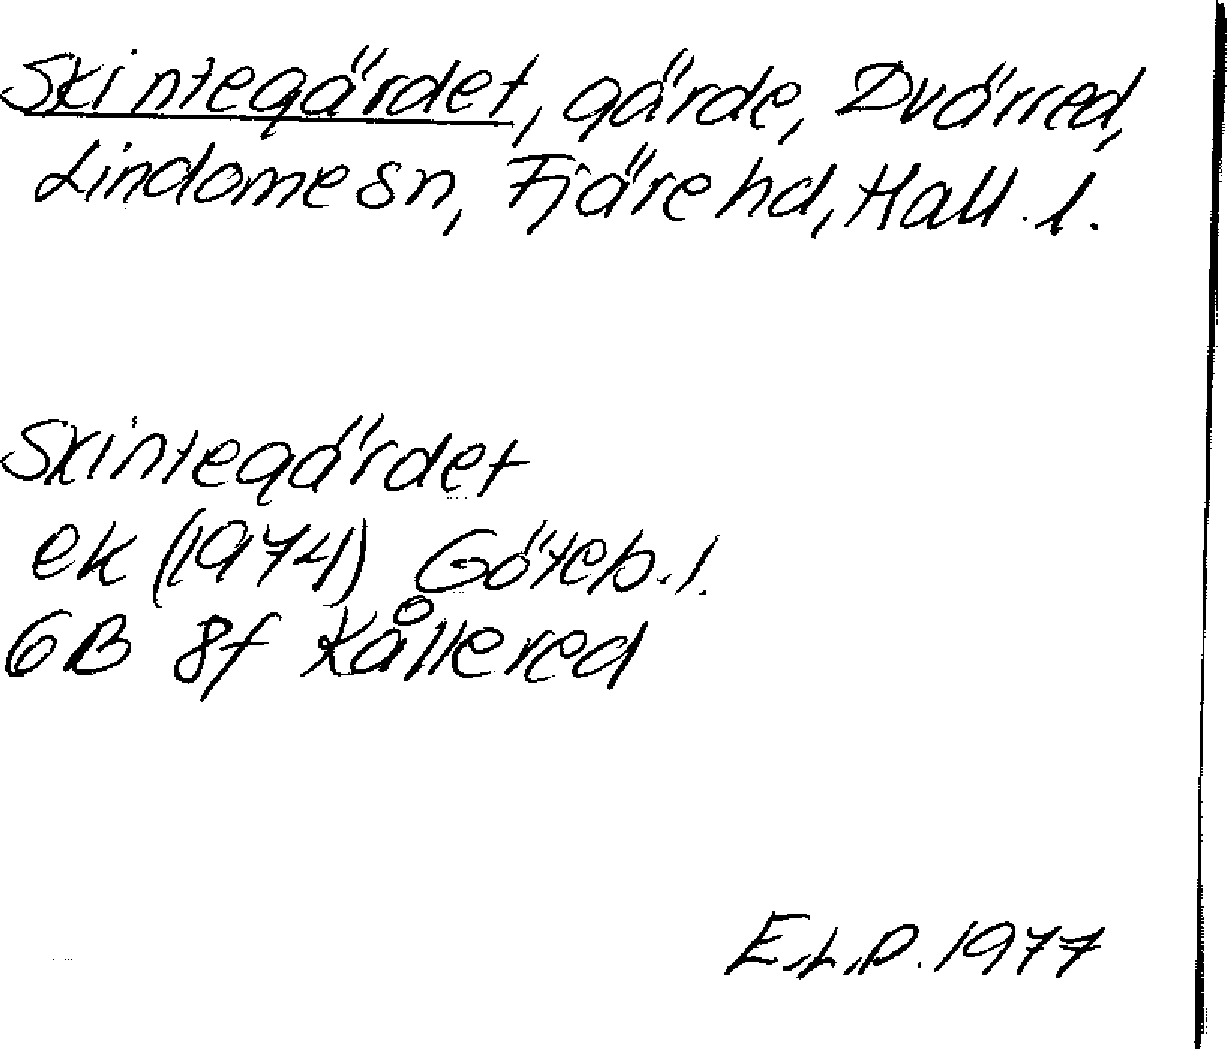 Skintegärdet, gärde, Dvärred,
Lindome sn, Fjäre hd, Hall. l.
Skintegärdet
ek (1974) Göteb. l.
6B 8f Kållered
E.L.P. 1977